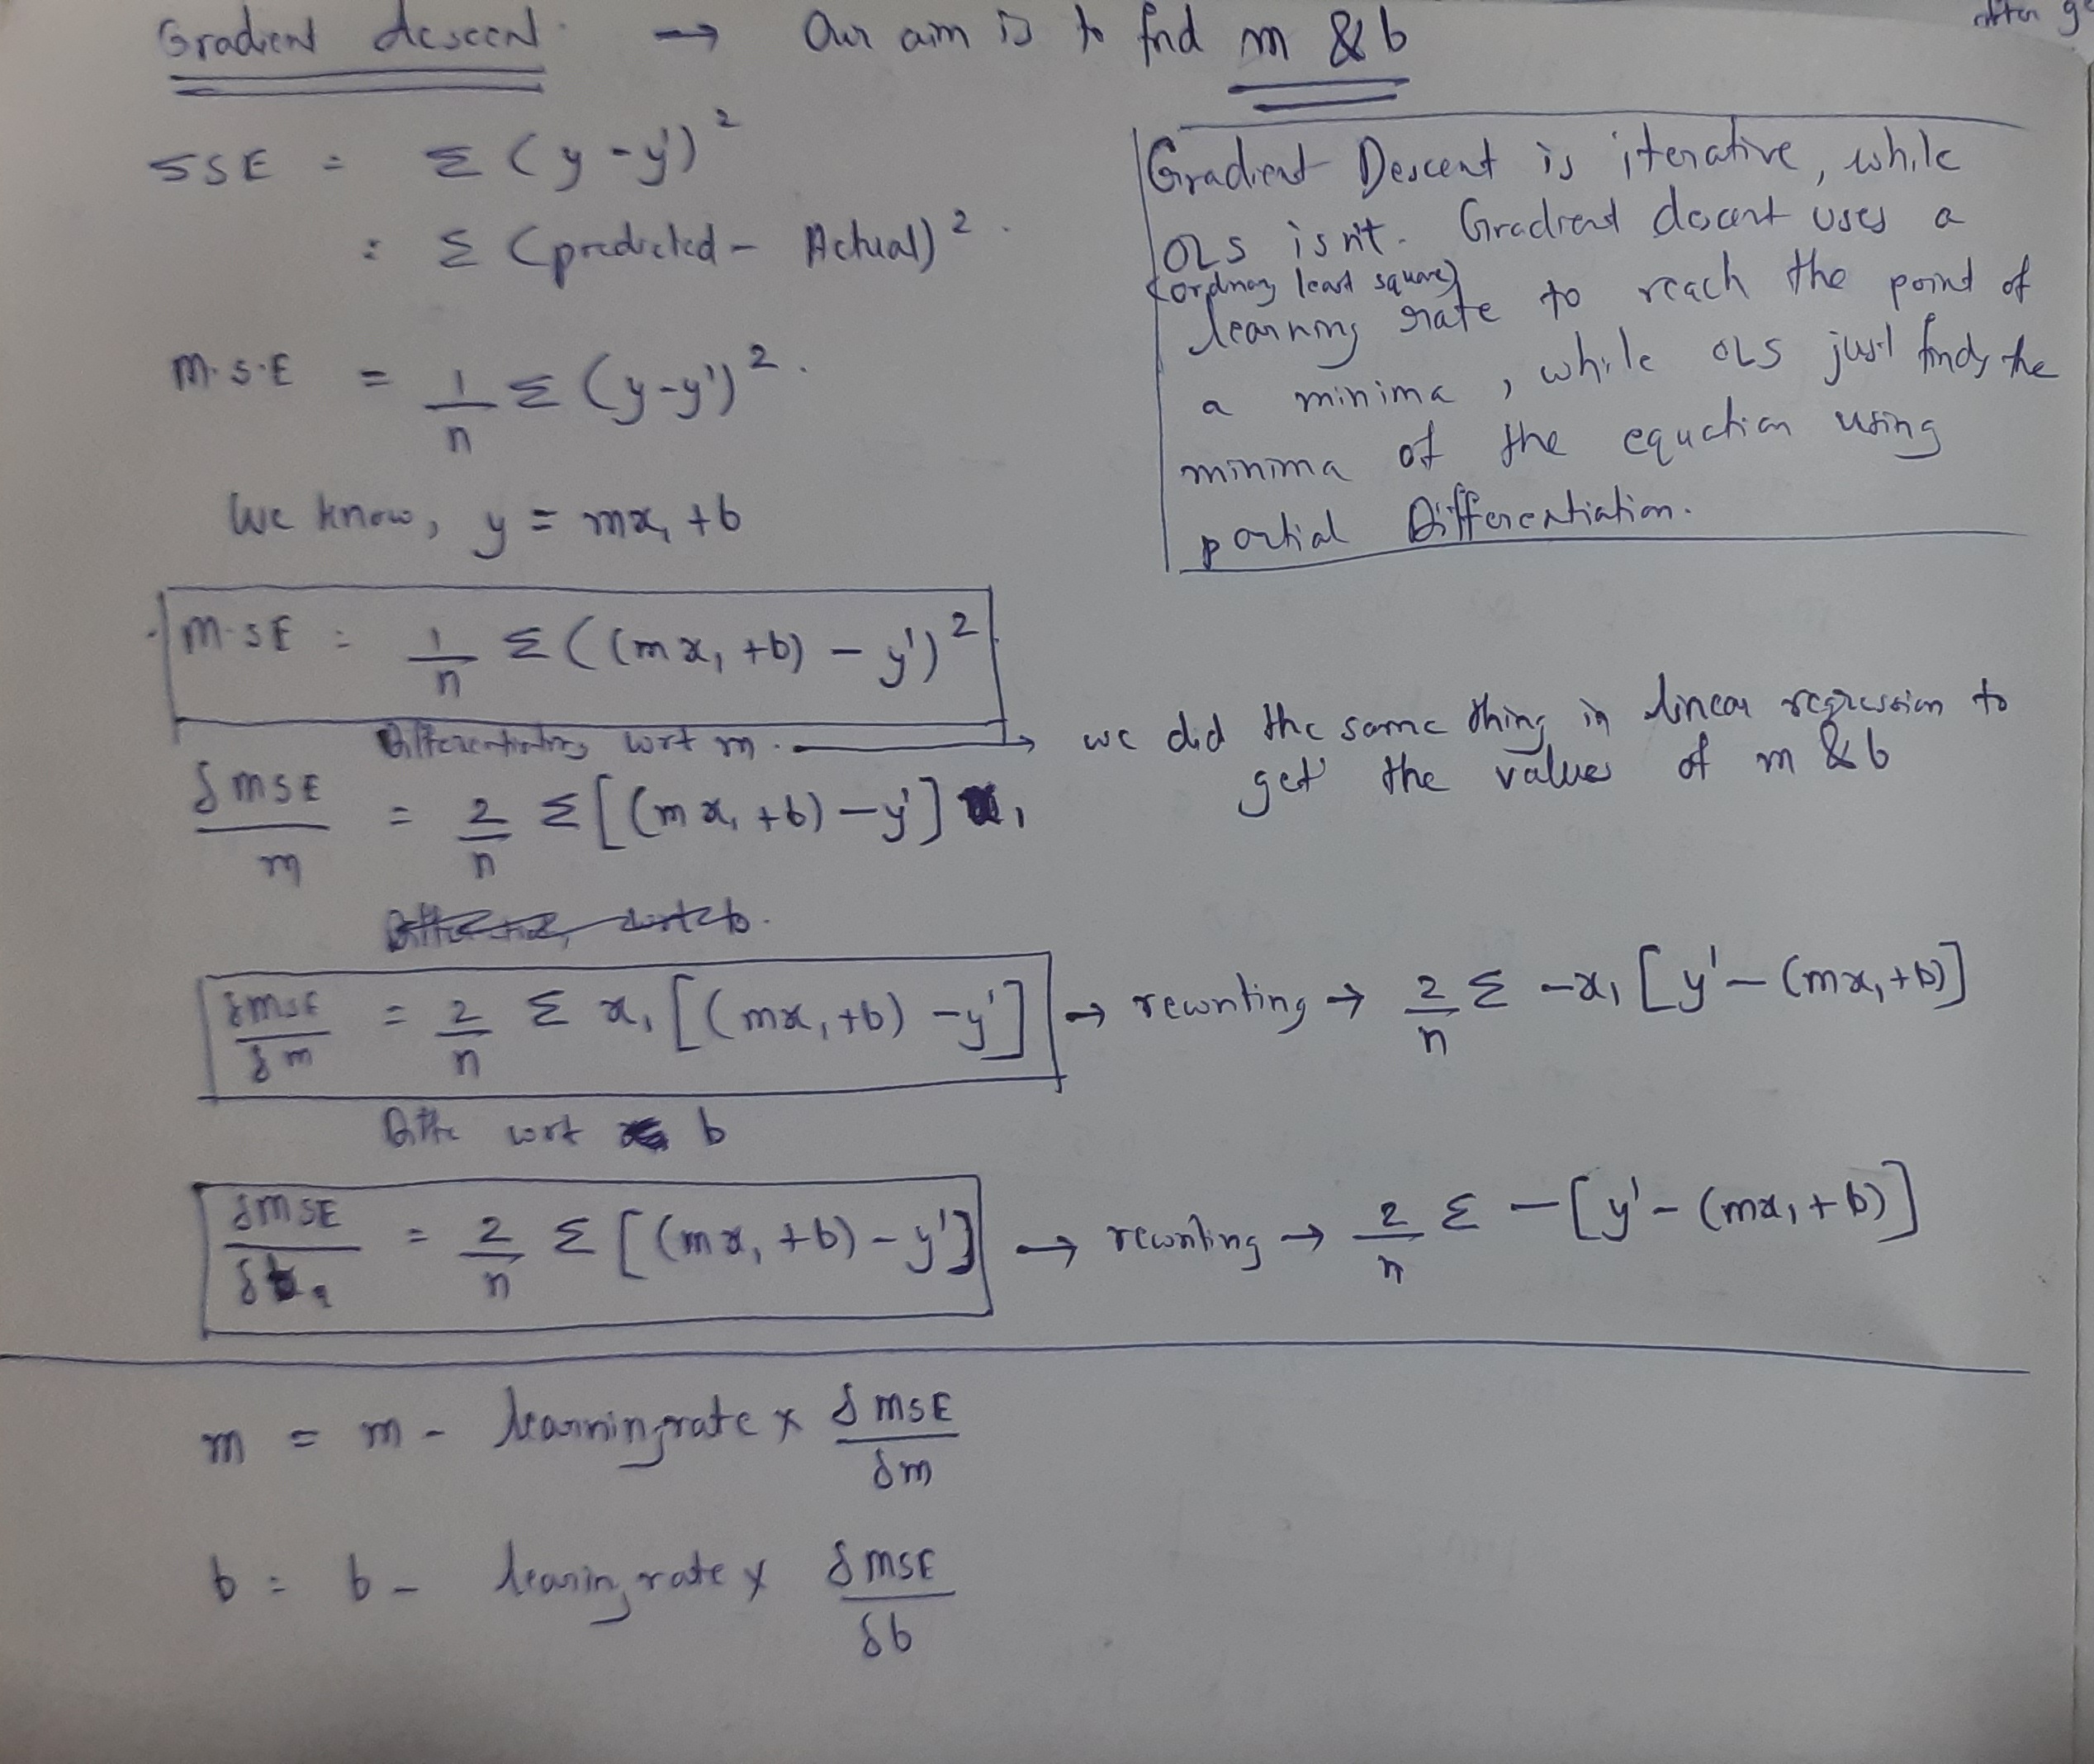 Gradient descent. → Our aim is to find m & b
after ge
SSE = Σ (y - y')²
= Σ (predicted - Actual)².
M.S.E = 1/n Σ (y - y')².
We know, y = mx₁ + b
Gradient Descent is iterative, while
OLS isn't. Gradient descent uses a
(ordinary least square)
learning rate to reach the point of
a minima, while OLS just finds the
minima of the equation using
partial Differentiation.
M.SE = 1/n Σ ((mx₁ + b) - y')²
Differentiating wrt m. → we did the same thing in linear regression to
get the values of m & b
δMSE/m = 2/n Σ [(mx₁ + b) - y'] x₁
δMSE/δm = 2/n Σ x₁ [(mx₁ + b) - y'] → rewriting → 2/n Σ -x₁ [y' - (mx₁ + b)]
Diffe wrt b
δMSE/δb = 2/n Σ [(mx₁ + b) - y'] → rewriting → 2/n Σ -[y' - (mx₁ + b)]
m = m - learning rate x δMSE/δm
b = b - learing rate x δMSE/δb